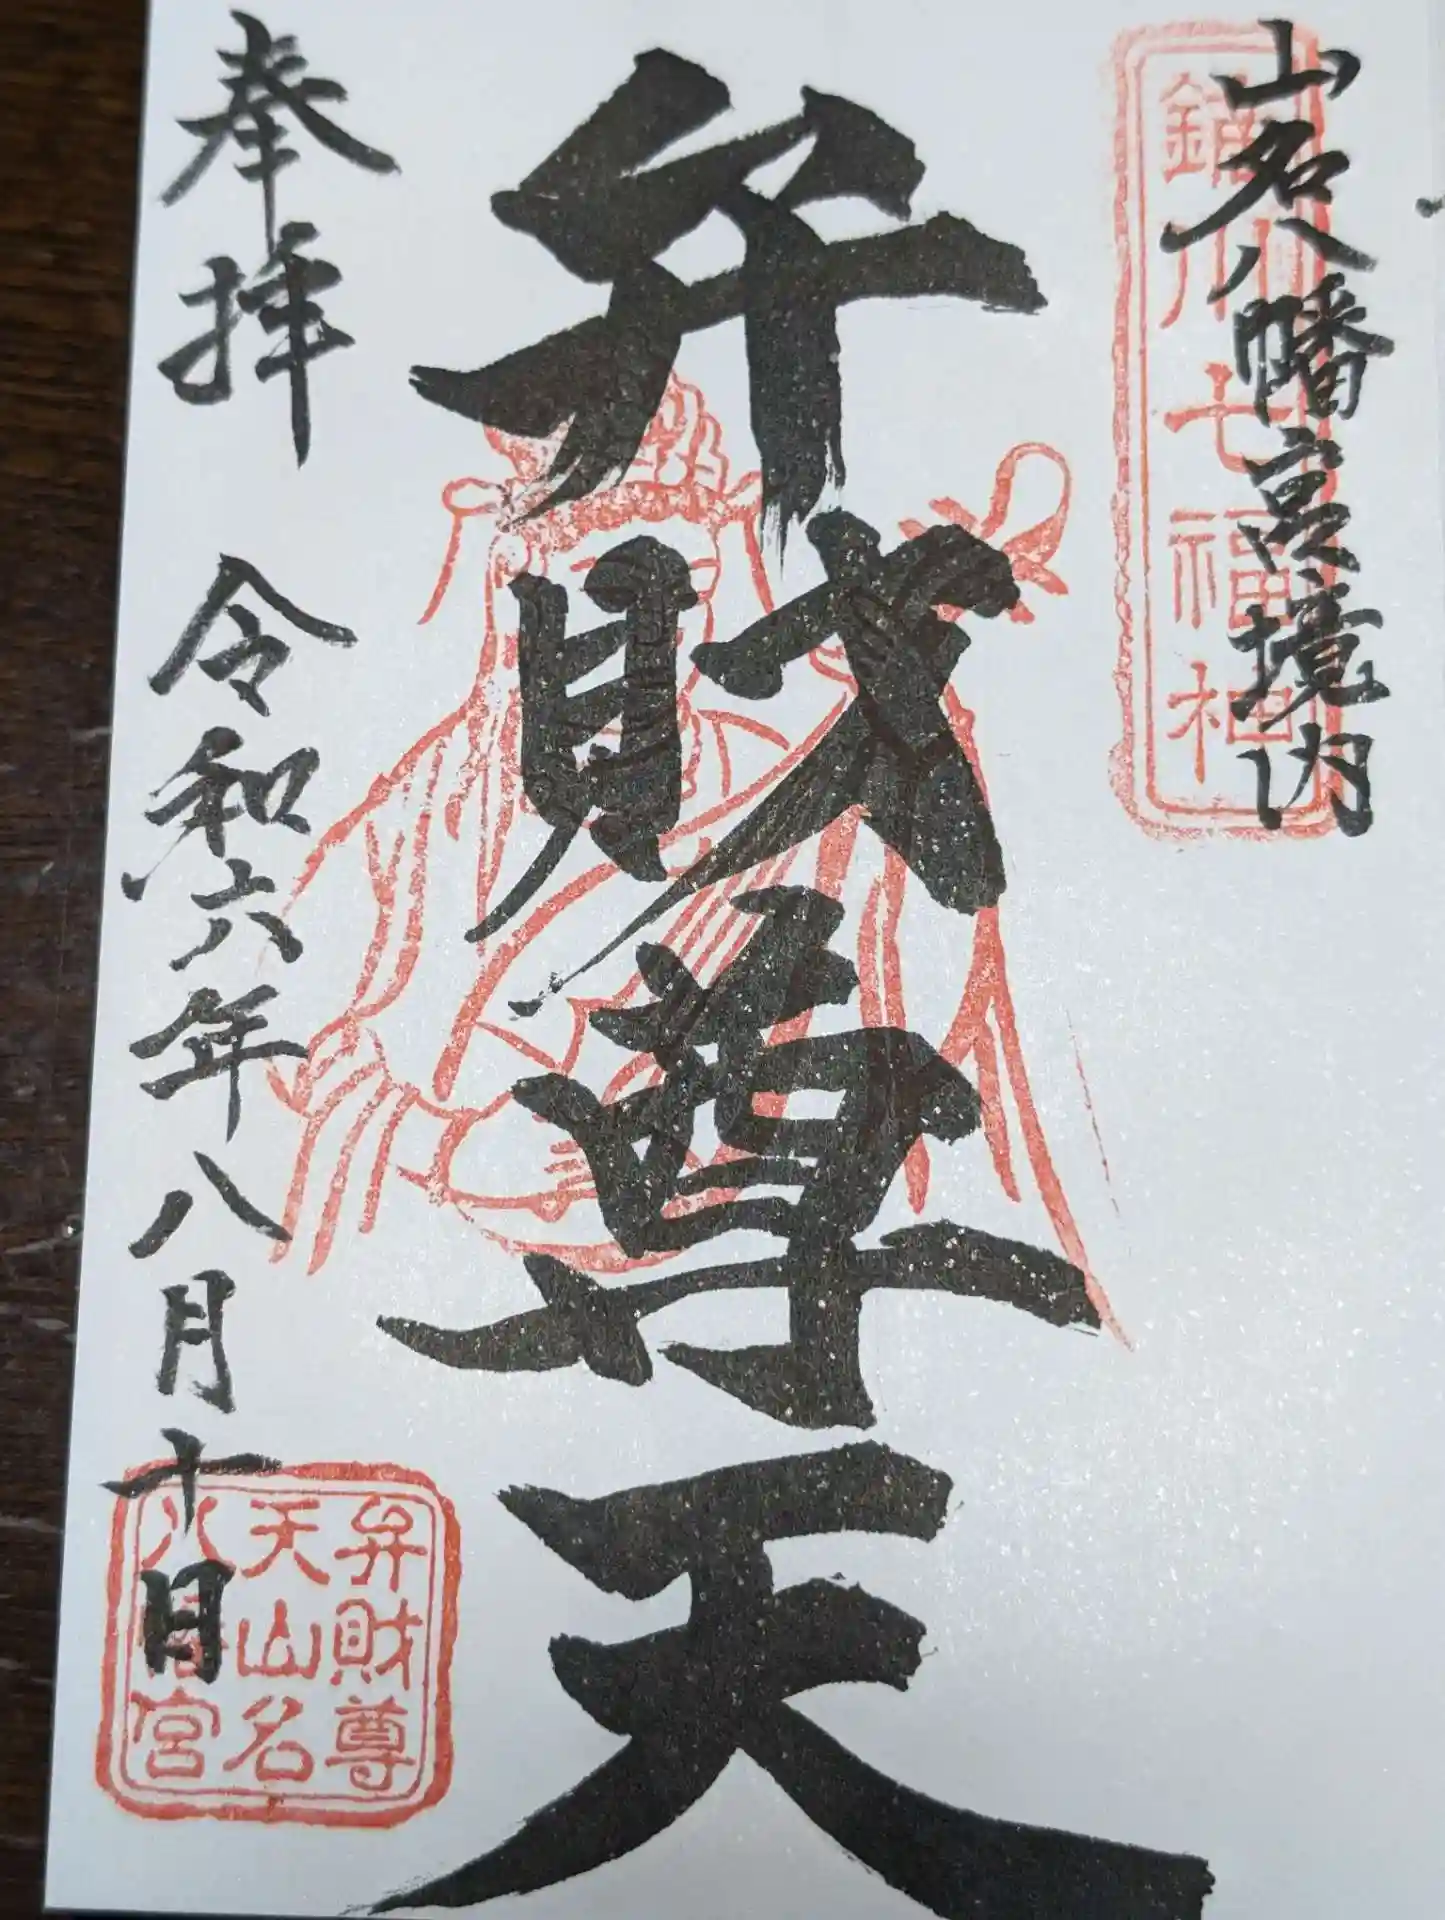 山名八幡宮境内
鏑川七福神
弁財尊天
奉拝
令和六年八月十日
弁財尊
天山名
八幡宮